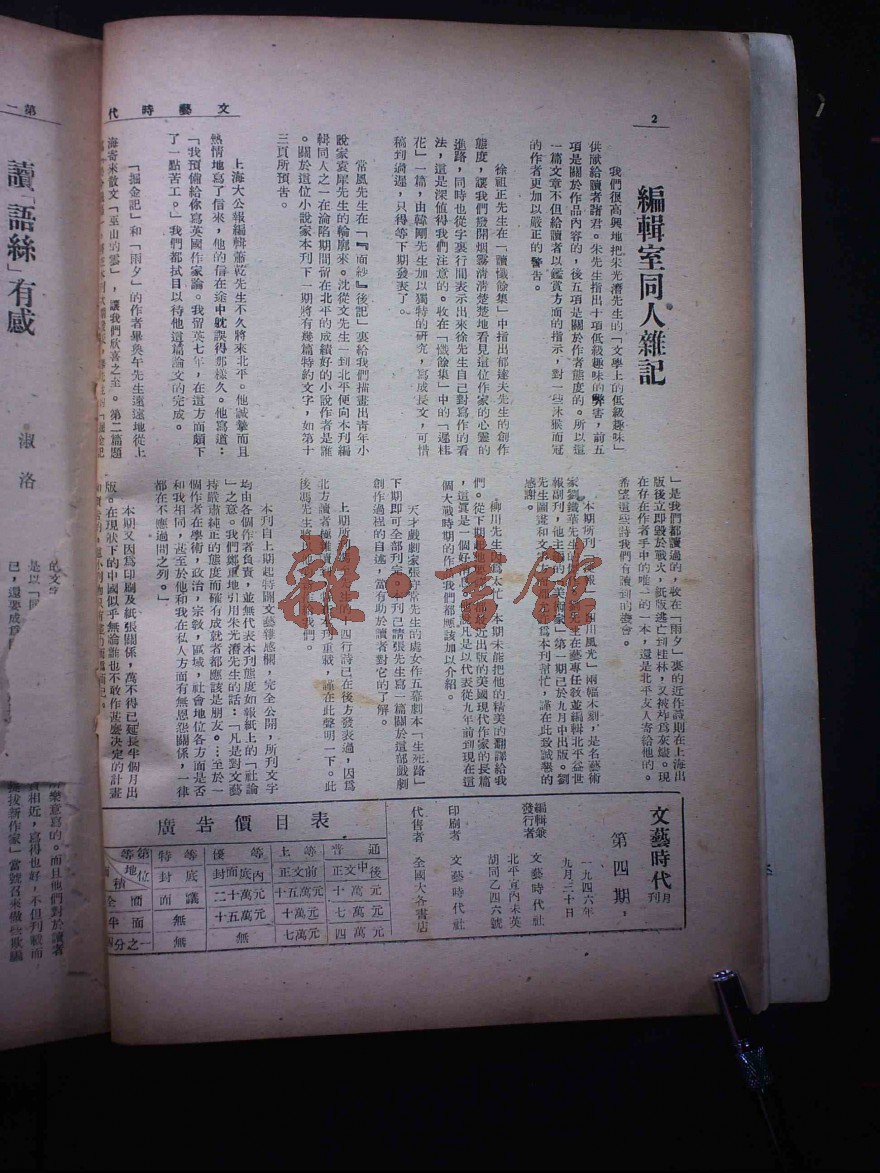 2
文藝時代
編輯室同人雜記
我們很高興地把朱光濳先生的「文學上的低級趣味」
供献給讀者諸君。朱先生指出十項低級趣味的弊害,前五
項是關於作品內容的,後五項是關於作者態度的。所以這
一篇文章不但給讀者以鑑賞方面的指示,對一些沐猴而冠
的作者更加以嚴正的警告。
徐祖正先生在「讀懺餘集」中指出郁達夫先生的創作
態度,讓我們撥開烟霧淸淸楚楚地看見這位作家的心靈的
進路,同時也從字裏行間表示出來徐先生自己對寫作的看
法,這是深値得我們注意的。收在「懺餘集」中的「遲桂
花」一篇,由韓剛先生加以獨特的研究,寫成長文,可惜
稿到過遲,只得等下期發表了。
常風先生在「『面紗』後記」裏給我們描畫出靑年小
說家袁犀先生的輪廓來。沈從文先生一到北平便向本刊編
輯同人之一在淪陷期間留在北平的成績好的小說作者是誰
。關於這位小說家本刊下一期將有幾篇特約文字,如第十
三頁所預吿。
上海大公報編輯蕭乾先生不久將來北平。他誠摯而且
熱情地寫了信來,他的信在途中就誤得那樣久。他寫道:
「我預備給你寫英國作家論。我留英七年,在這方面頗下
了一點苦工。」我們都拭目以待他這篇論文的完成。
「掘金記」和「雨夕」的作者畢奐午先生遠遠地從上
海寄來散文「巫山的雲」,讓我們欣喜之至。第二篇題
」是我們都讀過的,收在「雨夕」裏的近作詩則在上海出
版後立即毀於戰火,紙版逃亡到桂林,又被炸爲灰燼。現
在存在作者手中的唯一的一本,還是北平友人寄給他的。
希望這些詩我們有讀到的機會。
本期所刊「
報」「
川風光」兩幅木刻,是名藝術
家劉鐵華先生
在藝專任敎並編輯北平益世
報副刋,他主編的「美術家」第一期已於九月中出版。劉
先生圖畫和文
爲本刋幫忙,謹在此致誠懇的
感謝。
柳川先生因爲太忙,本期未能把他的精美的翻譯給我
們。從下期
最近出版的美國現代作家的長篇
,這眞是一個好
凡是以代表從九年前到現在這
個大戰時期的作
我們都應該加以介紹。
天才戲劇家張
先生的處女作五幕劇本「生死路」
下期卽可全部刋完。本刋已請張先生寫一篇關於這部戲劇
創作過程的自述,當有助於讀者對它的了解。
上期所
四行詩已在後方發表過,因爲
北方讀者
重載,謹在此聲明一下。此
後馮先生將
給我們。
本刋自上期起特闢文藝雜感欄,完全公開,所刋文字
均由各個作者負責,並無代表本刋態度如報紙上的「社論
」之意。我們鄭重地引用朱光濳先生的話:「凡是對文藝
持嚴肅純正的態度而確有成就者都應該是朋友。…至於一
個作者在學術,政治,宗敎,區域,社會地位各方面是否
和我相同,甚至於他和我在私人方面有無恩怨關係,一律
都在不應過問之列。」
本期又因爲印刷及紙張關係,萬不得已延長半個月出
版。在現狀下的中國似乎無論誰也不敢作甚麽決定的計畫
文藝時代月刊
第四期,
一九四六年
九月三十日
編輯兼發行者 文藝時代社
北平宣內未英
胡同乙四六號
印刷者 文藝時代社
代售者 全國大各書店
廣吿價目表
等第 地位 面積 特等 優等 上等 普通
封底 封面底內 正文前 正文中後
全面 面議 二十萬元 十五萬元 十萬元
半面 無 十五萬元 十萬元 七萬元
四分之一 無 無 七萬元 四萬元
雜·書館
第二
讀「語絲」有感
淑洛
的文字
是以「
已,還要成爲
樂意寫的。而且他們對於讀者
相近,寫得也好,不但刊載而
拔新作家」當號召來做些欺騙